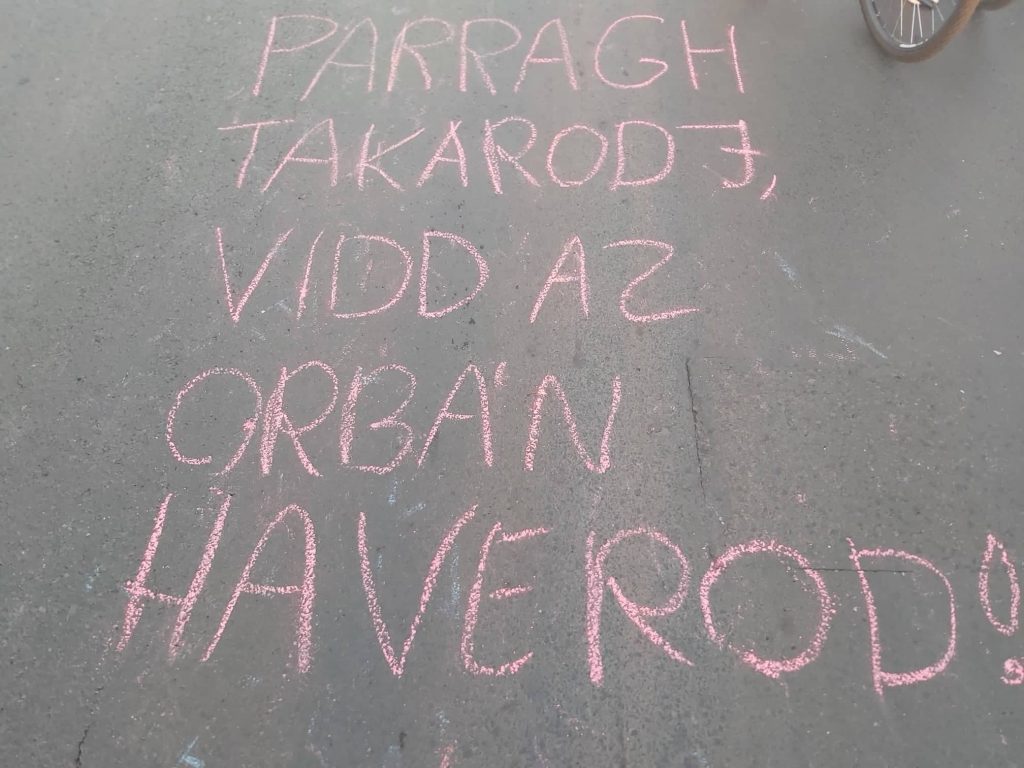 PARRAGH
TAKARODJ,
VIDD AZ
ORBÁN
HAVEROD!